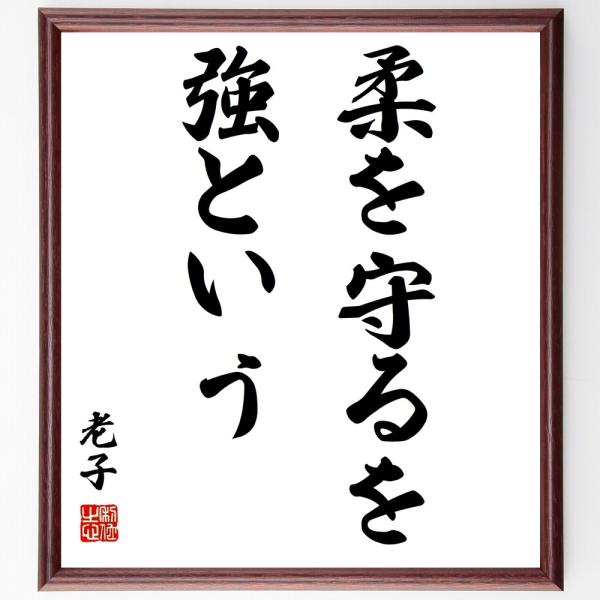 柔を守るを
強という
老子